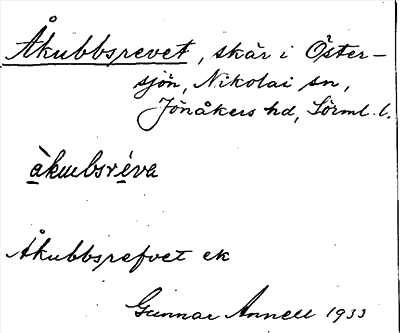 Åkubbsrevet, skär i Öster-
sjön, Nikolai sn,
Jönåkers hd, Sörml. l.
àkubsréva
Åkubbsrefvet ek
Gunnar Annell 1933